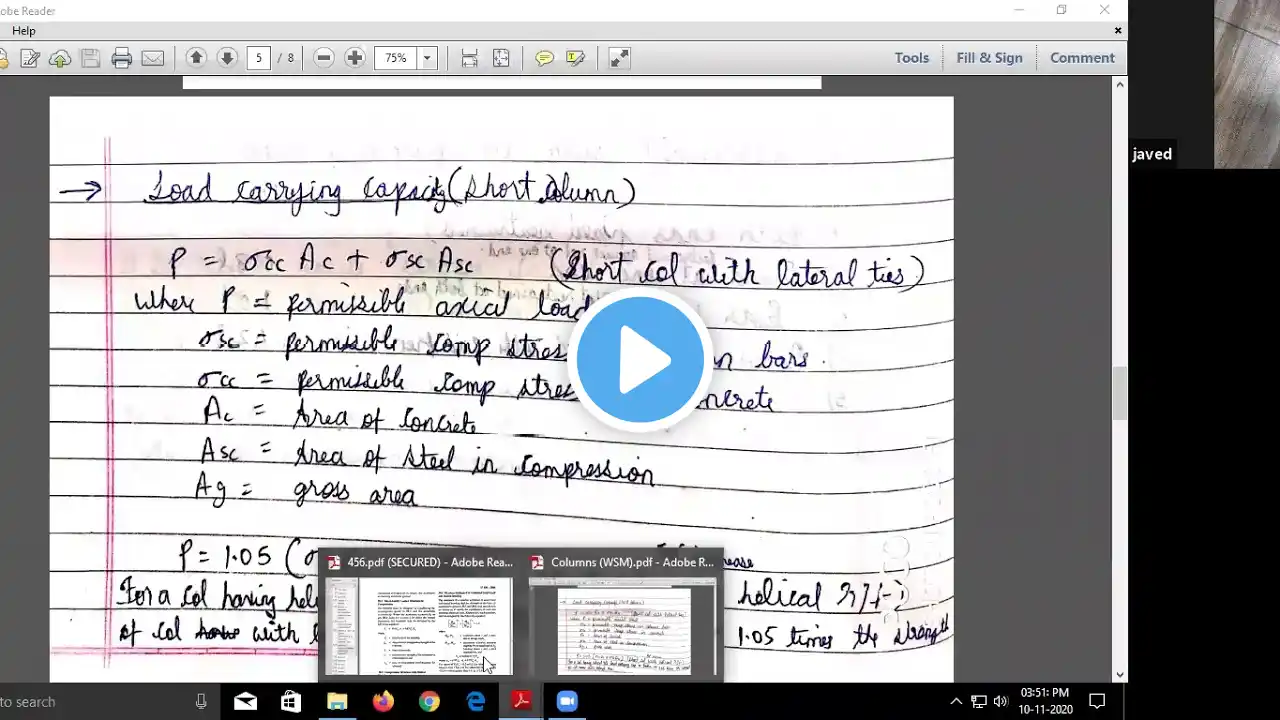 obe Reader
Help
5 / 8 75% Tools Fill & Sign Comment
javed
→ Load carrying capacity (Short Column)
P = σcc Ac + σsc Asc (Short col with lateral ties)
Where P = permissible axial load
σsc = permissible comp stres n bars.
σcc = permissible comp stres ncrete
Ac = Area of Concrete
Asc = Area of steel in compression
Ag = gross area
P = 1.05 (σ
For a col having hel helical r/f (-)
of col with 1.05 times the strength
456.pdf (SECURED) - Adobe Rea...
Columns (WSM).pdf - Adobe R...
to search
03:51: PM
10-11-2020